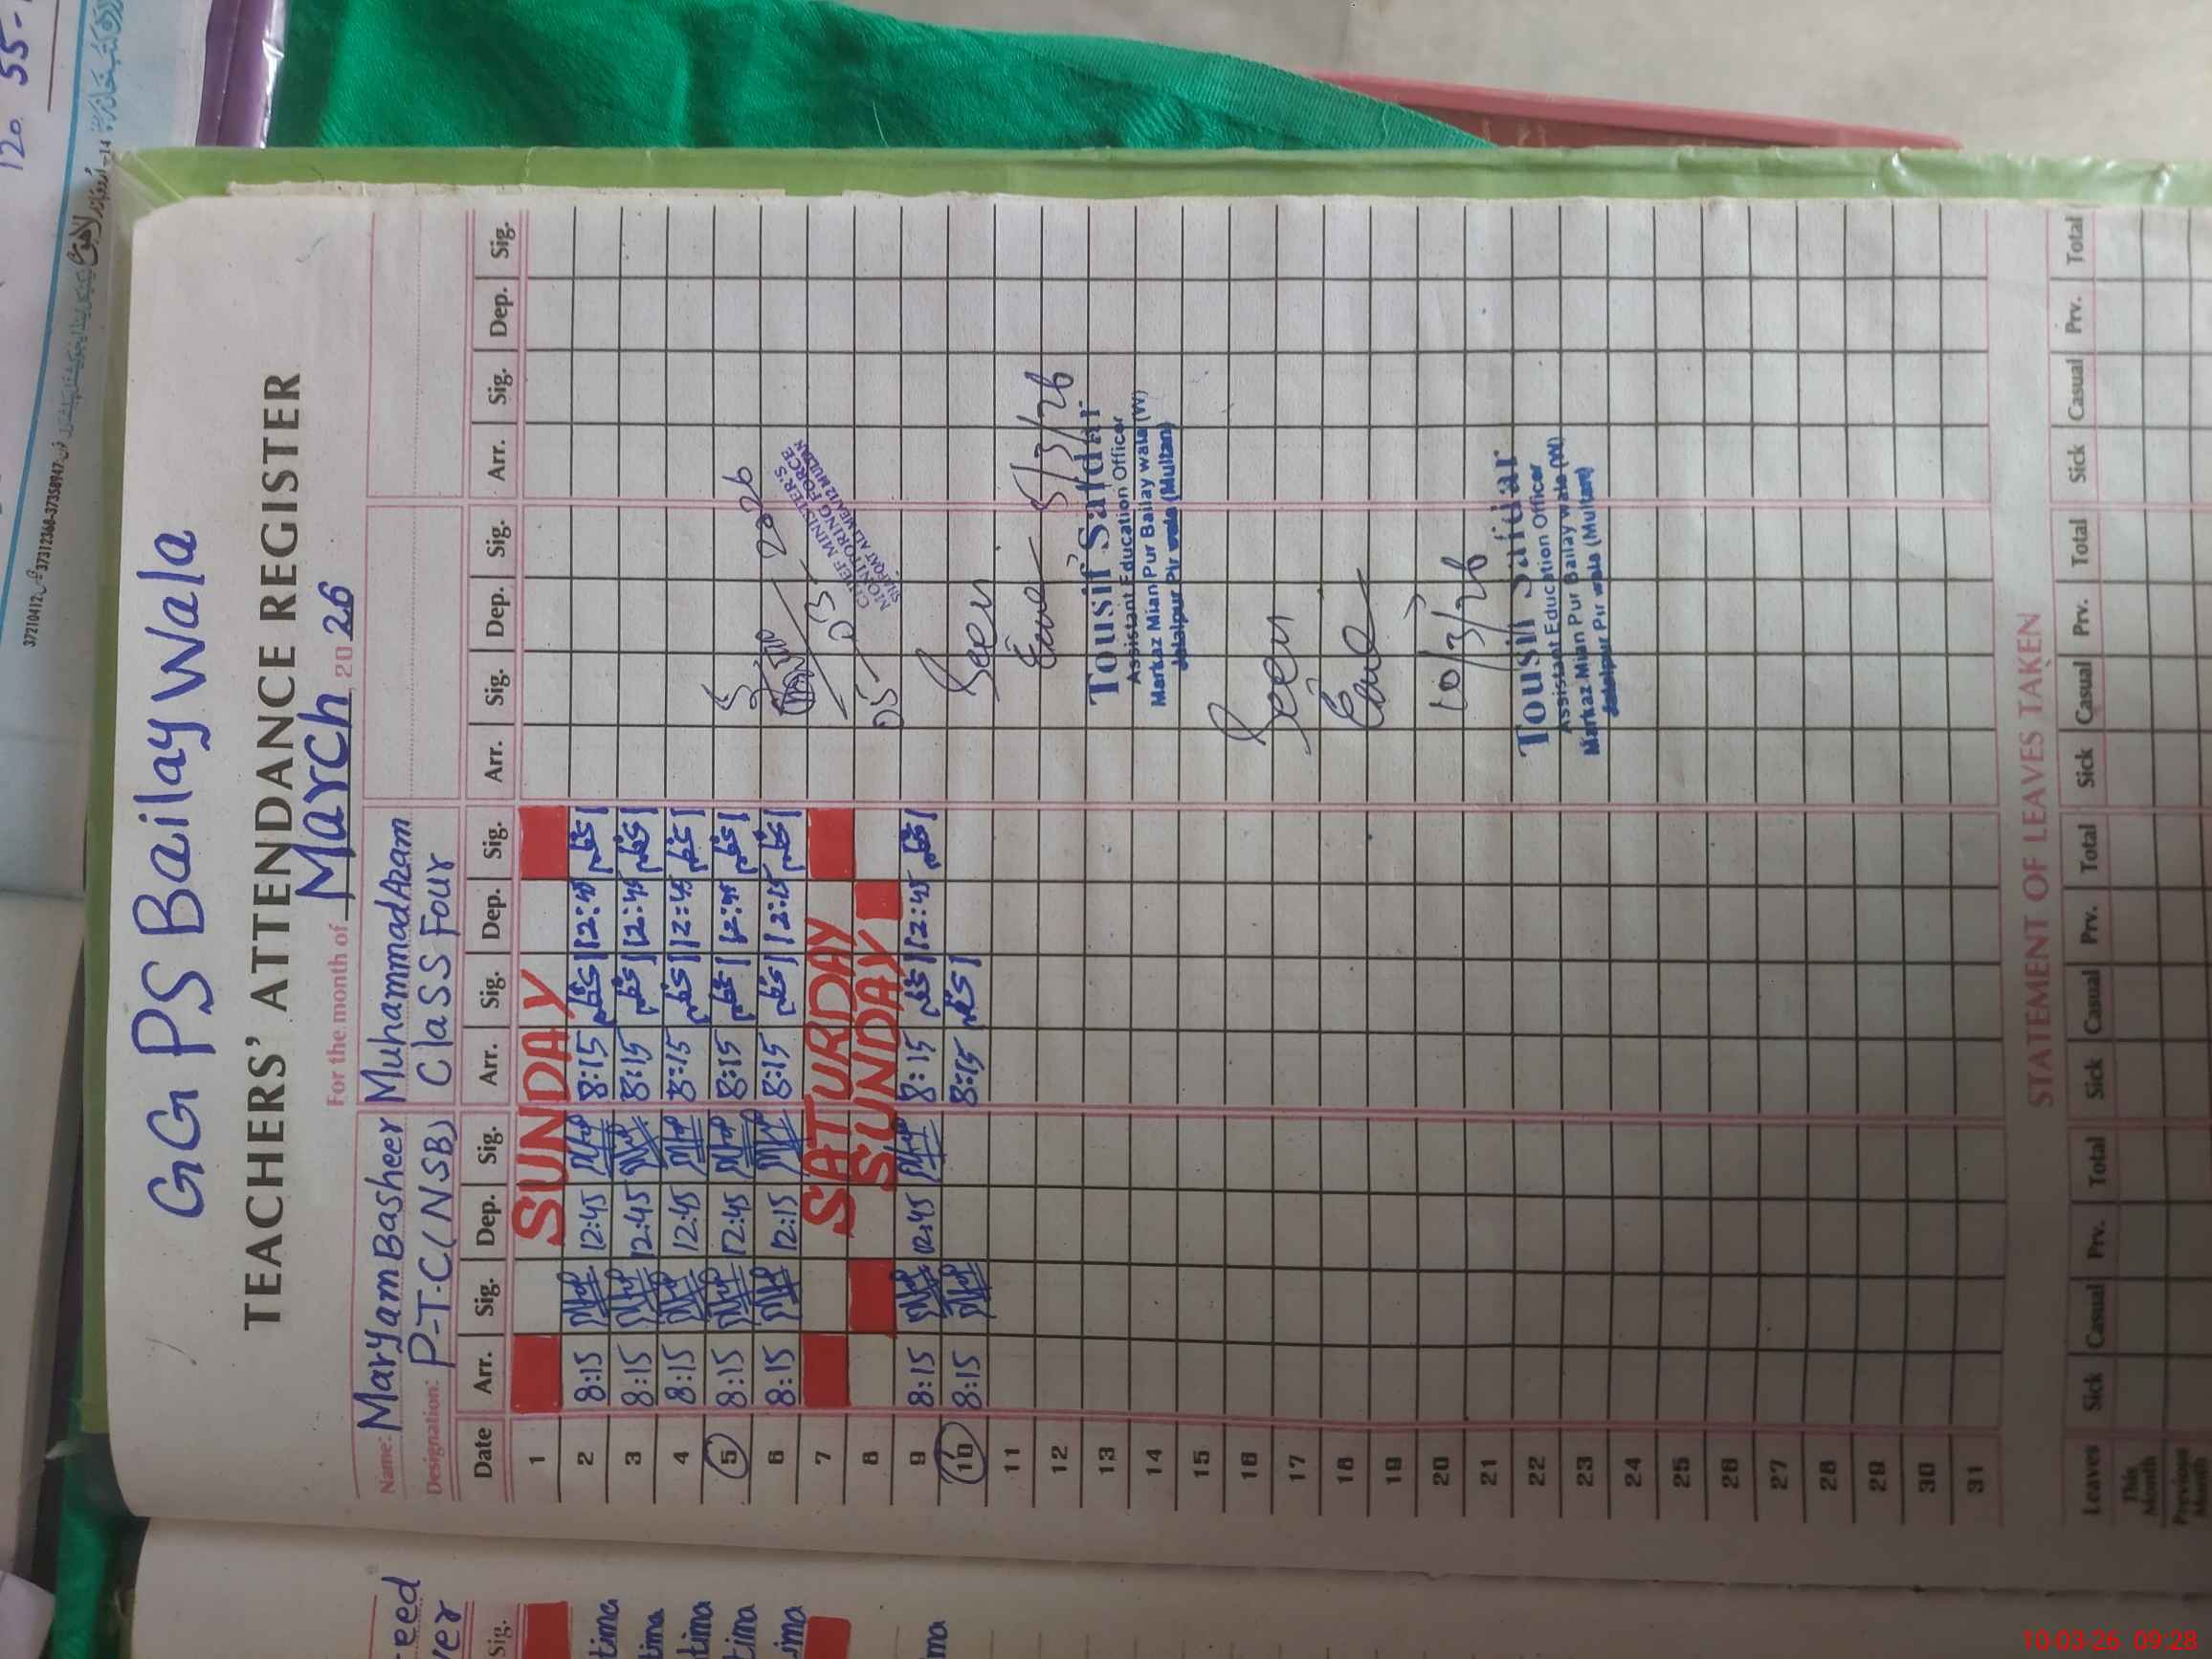 GGPS BailayWala
TEACHERS' ATTENDANCE REGISTER
For the month of March 2026
Name: Maryam Basheer Muhammad Azam
Designation: P-T-C(NSB) Class Four
Date Arr. Sig. Dep. Sig. Arr. Sig. Dep. Sig. Arr. Sig. Dep. Sig. Arr. Sig. Dep. Sig.
1 SUNDAY
2 8:15 12:45 8:15 12:45
3 8:15 12:45 8:15 12:45
4 8:15 12:45 8:15 12:45
5 8:15 12:45 8:15 12:45
6 8:15 12:15 8:15 12:15
7 SATURDAY
8 SUNDAY
9 8:15 12:45 8:15 12:45
10 8:15 8:15
11
12
13
14
15
16
17
18
19
20
21
22
23
24
25
26
27
28
29
30
31
05-03-2026
CHIEF MINISTER'S
MONITORING FORCE
Seen
5/3/26
Tousif Safdar
Assistant Education Officer
Markaz Mian Pur Bailay wala (W)
Jalalpur Pir wala (Multan)
Seen
10/3/26
Tousif Safdar
Assistant Education Officer
Markaz Mian Pur Bailay wala (W)
Jalalpur Pir wala (Multan)
STATEMENT OF LEAVES TAKEN
Leaves Sick Casual Prv. Total Sick Casual Prv. Total Sick Casual Prv. Total Sick Casual Prv. Total
This Month
Previous Month
Sig.
tima
tima
tima
tima
ima
ma
120 55-
37210412 37312360-37358947
لاہور
10-03-26, 09:28